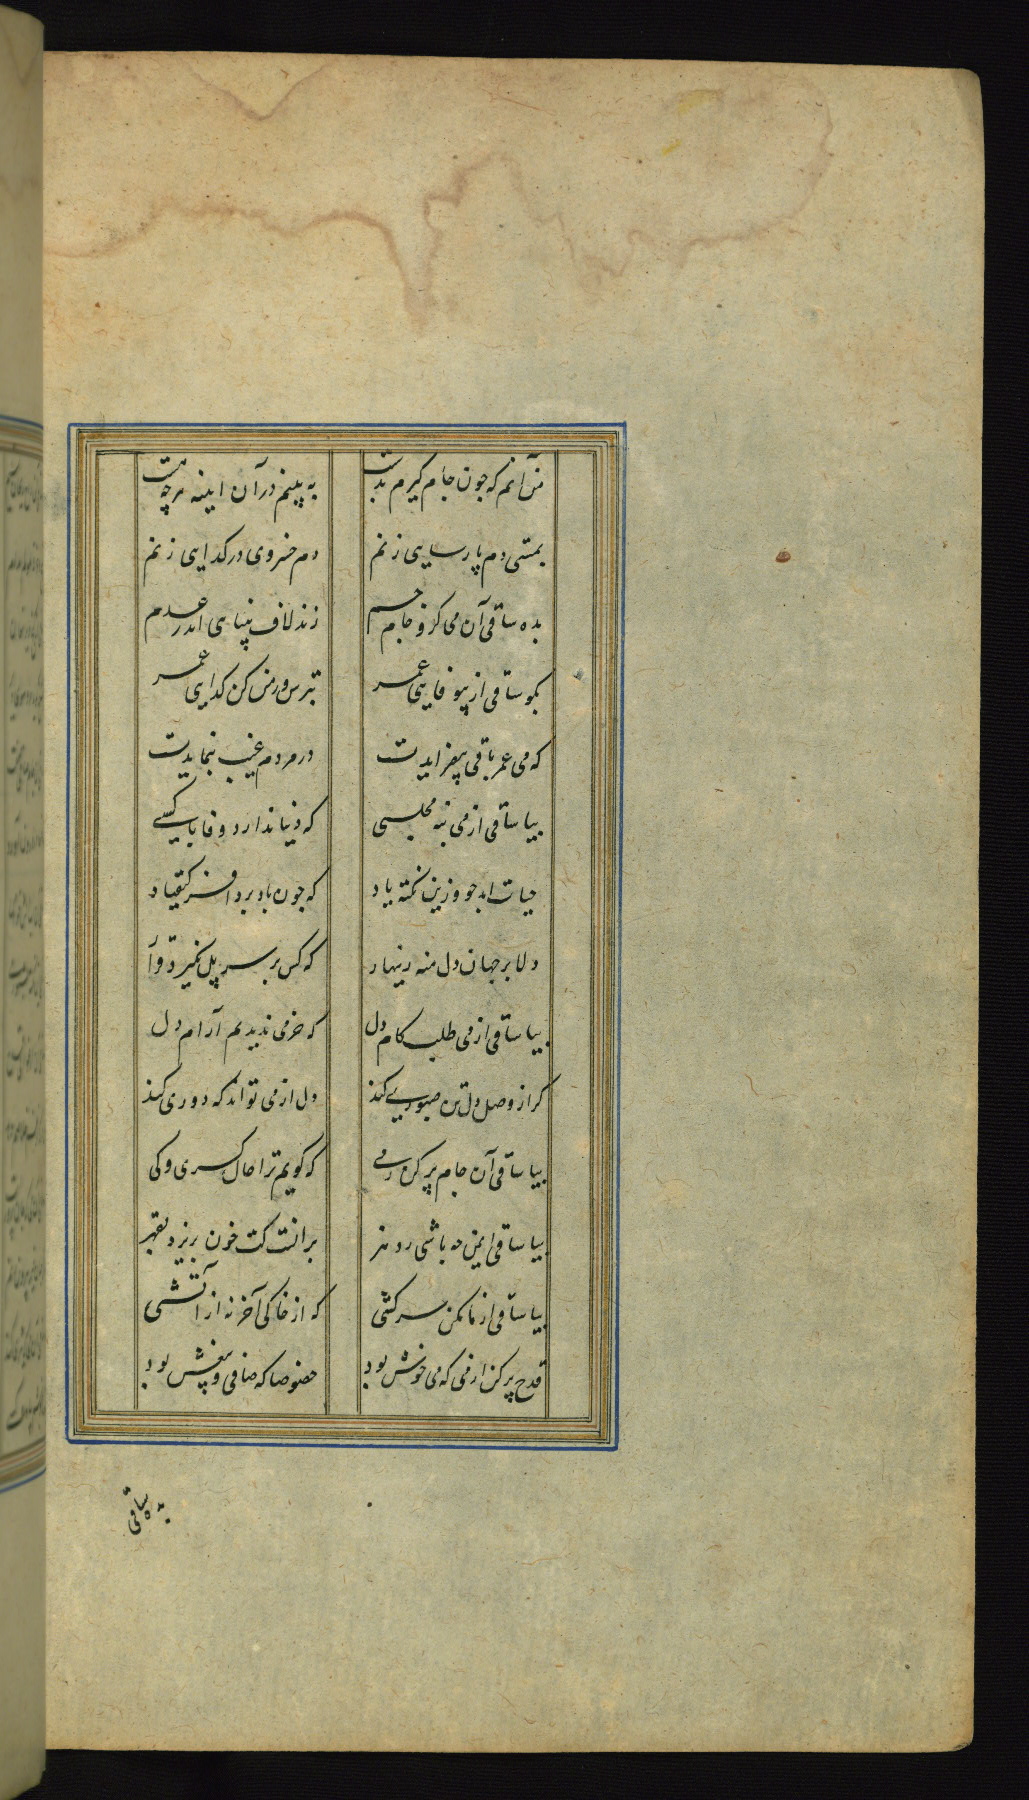 من آنم که جون جام کیرم بدست به بینم در آن اینه هرچه هست
بمستی دم پارسایی زنم دم خسروی در کدایی زنم
بده ساقی آن می کزو جام جم زند لاف بینایی اندر عدم
بکو ساقی از بیوفایی عمر بترس و ز می کن کدایی عمر
که می عمر باقی بیفزایدت در مردم غیب بنمایدت
بیا ساقی از می بنه مجلسی که دنیا ندارد وفا با کسی
حیات ابد جو وزین نکته یاد که جون باد برد افسر کیقباد
دلا بر جهان دل منه زینهار که کس بر سر پل نکیرد قرار
بیا ساقی از می طلب کام دل که جز می ندیدم آرام دل
کر از وصل دل تن صبوری کند دل از می تواند که دوری کند
بیا ساقی آن جام پر کن ز می که کویم ترا حال کسری و کی
بیا ساقی ایمن چه باشی ز دهر بر آنست کت خون بریزد بقهر
بیا ساقی از ما مکن سرکشی که از خاکی آخر نه از آتشی
قدح پر کن از می که می خوش بود خصوصا که صافی و بیغش بود
بده ساقی